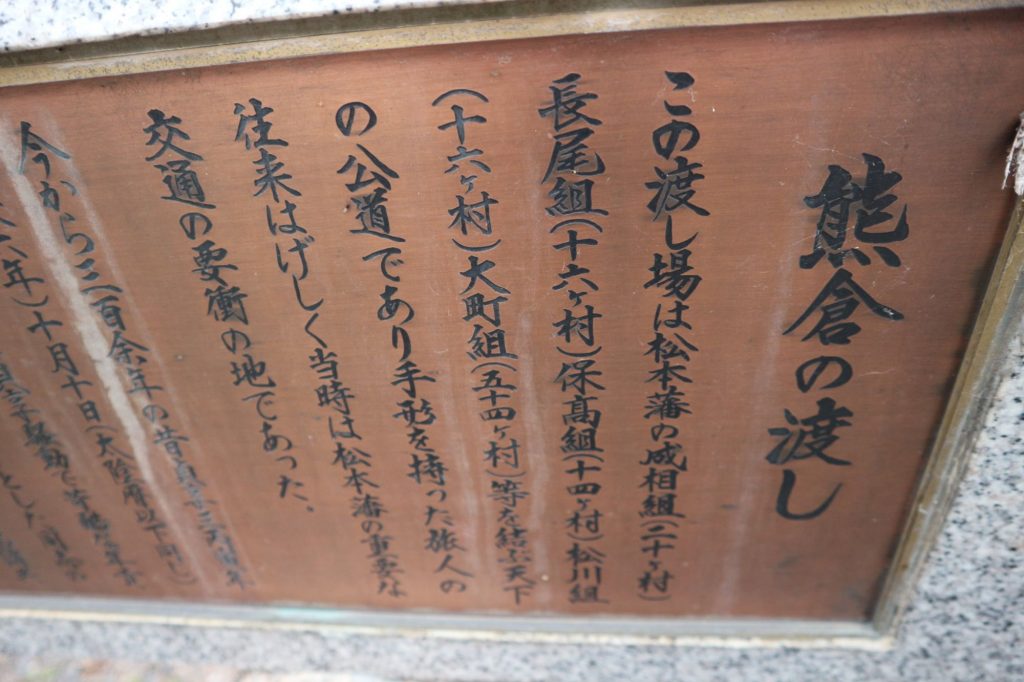 熊倉の渡し
この渡し場は松本藩の成相組(二十ヶ村)
長尾組(十六ヶ村)保高組(十四ヶ村)松川組
(十六ヶ村)大町組(五十四ヶ村)等を結ぶ天下
の公道であり手形を持った旅人の
往来はげしく当時は松本藩の重要な
交通の要衝の地であった。
今から三百余年の昔貞享三丙寅年
六年)十月十日(太陰暦以下同じ)